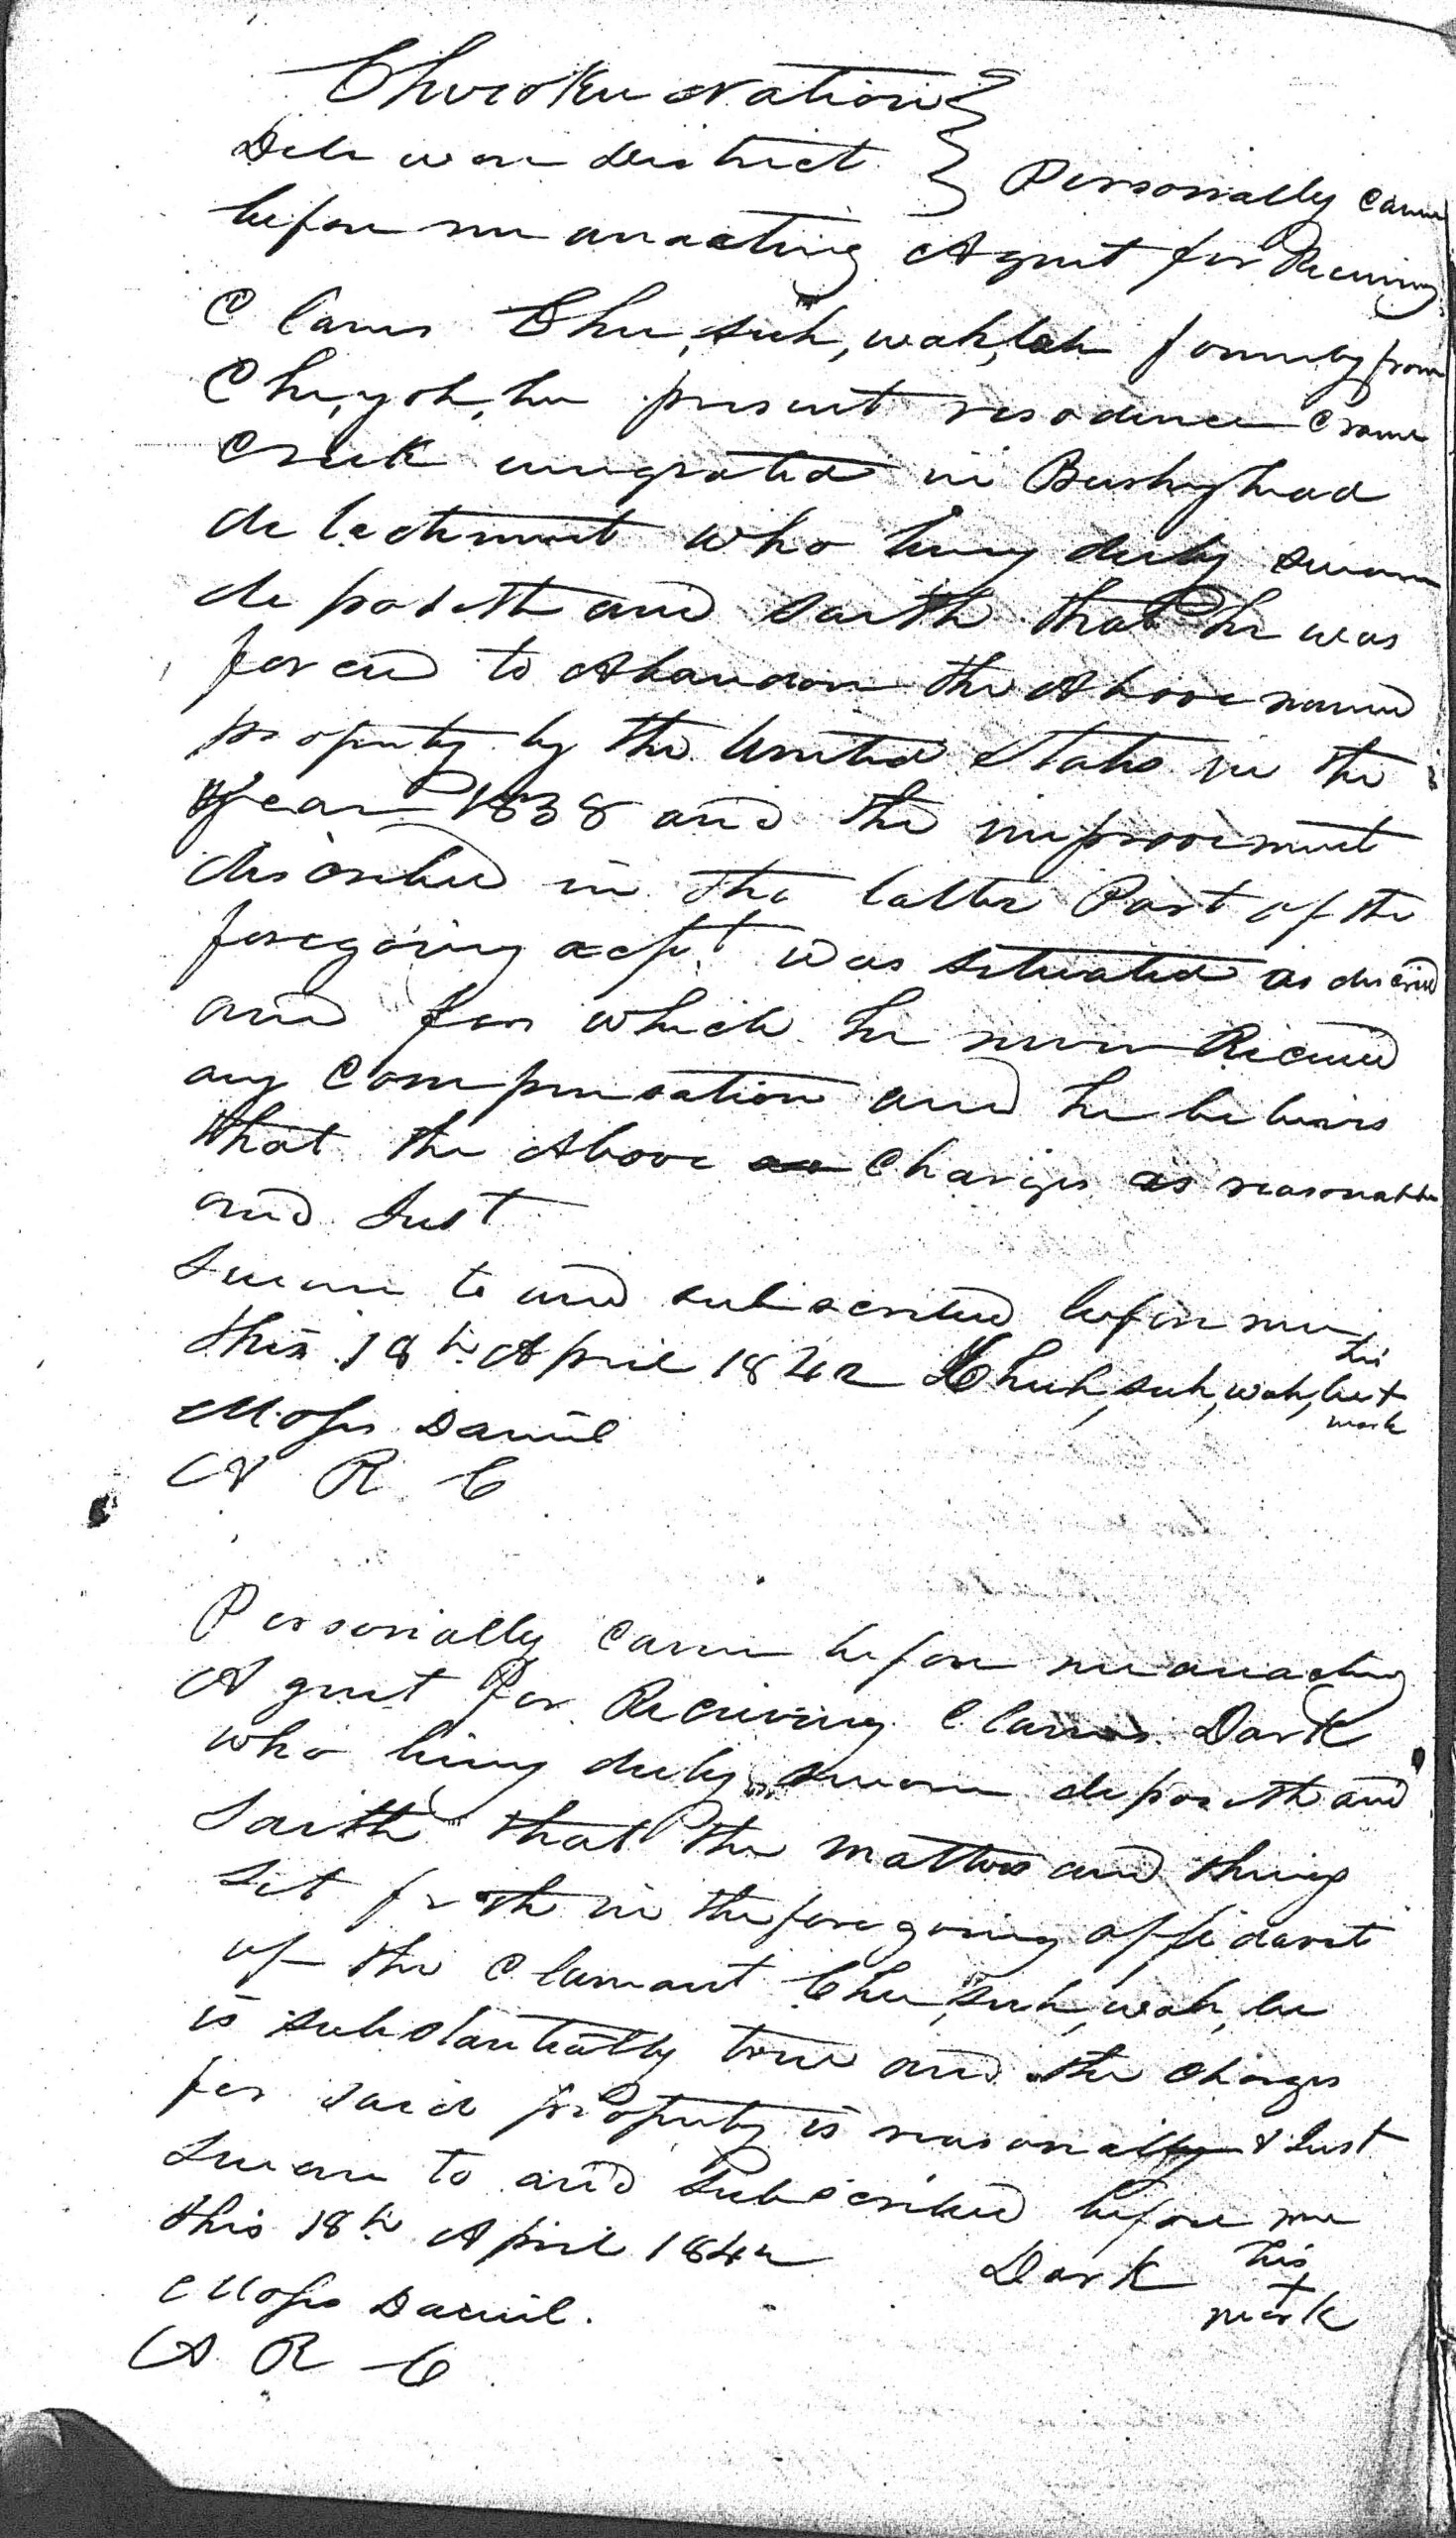 Cherokee Nation }
Delaware district } Personally came
before me an acting Agent for Receiving
Claims Chu,suh,wah,lah formerly from
Che,yoh,hee present resodence
Creek emigrated in Bushyhead
detachment who being duly sworn
deposeth and saith that he was
forced to Abandon the Above named
property by the United States in the
year 1838 and the improvement
discribed in the latter Part of the
foregoing acpt. was situated as
and for which he never Recieved
any Compensation and he believs
that the Above Charges as reasonable
and Just
Sworn to and subscribed before me
this 18th April 1842 Chuh,suh,wah,lee his + mark
Moses Daniel
A R C
Personally came before me an acting
Agent for Receiving Claims Dark
who being duly sworn deposeth and
saith that the matters and things
set forth in the foregoing affidavit
of the Clamant Chu,suh,wah,lee
is substantially true and the charges
for said property is reasonably & Just
Sworn to and Subscribed before me
this 18th April 1842 Dark his + mark
Moses Daniel.
A R C